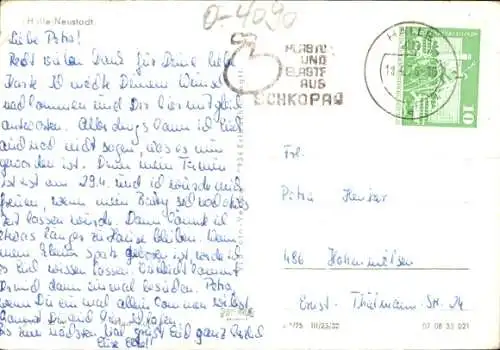 Halle-Neustadt
0-4090
Liebe Petra!
Recht vielen Dank für Deine liebe
Karte. Ich möchte Deinem Wunsch
nachkommen und Dir hier mit gleich
antworten. Allerdings kann ich Euch
noch nicht sagen, was es nun
geworden ist. Denn mein Termin
ist erst am 29.4. und ich würde mich
freuen, wenn mein Baby sich noch etwas
Zeit lassen würde. Dann könnte ich
etwas länger zu Hause bleiben. Wenn
mein Kleiner Spatz geboren ist, werde ich
es Euch wissen lassen. Vielleicht kommst
Du mich dann einmal besuchen. Petra,
wenn Du einmal allein kommen willst,
kannst Du
Bis zum nächsten Mal grüßt Euch ganz herzlich
Eure
PLASTE
UND
ELASTE
AUS
SCHKOPAU
HALLE
10
Frl.
Petra
486 Hohenmölsen
Ernst-Thälmann-Str. 14
III/23/32
07 08 33 021